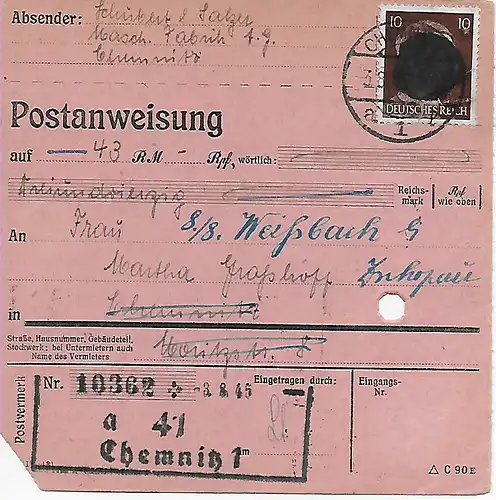 Absender: Schubert & Salzer
Masch. Fabrik A.G.
Chemnitz
10 10
DEUTSCHES REICH
CH
a 1
Postanweisung
auf 43 RM - Rpf, wörtlich:
Dreiundvierzig Reichsmark Rpf wie oben
An Frau z/Z. Weißbach
Martha Graßhoff Zschopau
in Chemnitz
Straße, Hausnummer, Gebäudeteil, Stockwerk; bei Untermietern auch Name des Vermieters
Moritzstr. 8
Postvermerk
Nr. 10362 -3.8.45 Eingetragen durch: Eingangs-Nr.
a 41
Chemnitz 1
△ C 90 E